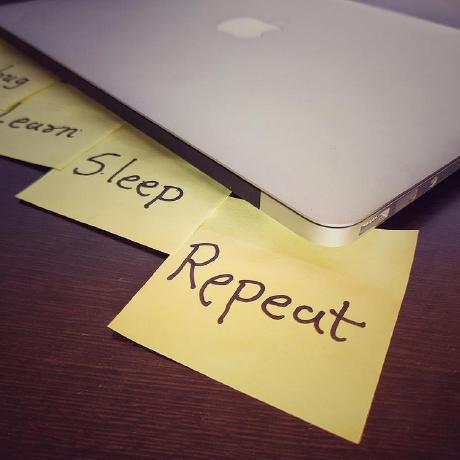 Learn
Sleep
Repeat